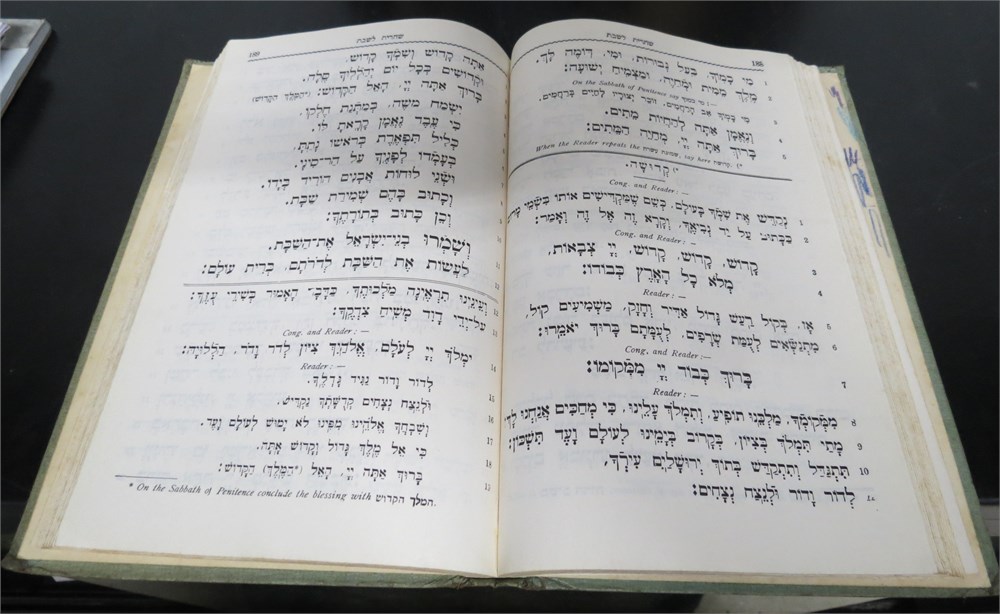 שחרית לשבת
מִי כָמֽוֹךָ, בַּֽעַל גְּבוּרוֹת, וּמִי, דּֽוֹמֶה לָּךְ.
מֶֽלֶךְ מֵמִית וּמְחַיֶּה, וּמַצְמִֽיחַ יְשׁוּעָה: 2
On the Sabbath of Penitence say מי כמוך :—
מִי כָמֽוֹךָ אַב הָרַחֲמִים, זוֹכֵר יְצוּרָיו לְחַיִּים בְּרַחֲמִים. 3
וְנֶאֱמָן אַתָּה לְהַחֲיוֹת מֵתִים. 4
בָּרוּךְ אַתָּה יְיָ, מְחַיֵּה הַמֵּתִים:
When the Reader repeats the שמונה עשרה, say here קדושה.
קְדוּשָׁה.
Cong. and Reader :—
נְקַדֵּשׁ אֶת שִׁמְךָ בָּעוֹלָם, כְּשֵׁם שֶׁמַּקְדִּישִׁים אוֹתוֹ בִּשְׁמֵי 1
כַּכָּתוּב עַל יַד נְבִיאֶֽךָ, וְקָרָא זֶה אֶל זֶה וְאָמַר: 2
Cong. and Reader :—
קָדוֹשׁ, קָדוֹשׁ, קָדוֹשׁ, יְיָ צְבָאוֹת, 3
מְלֹא כָל הָאָֽרֶץ כְּבוֹדוֹ: 4
Reader :—
אָז, בְּקוֹל רַֽעַשׁ גָּדוֹל אַדִּיר וְחָזָק, מַשְׁמִיעִים קוֹל, 5
מִתְנַשְּׂאִים לְעֻמַּת שְׂרָפִים, לְעֻמָּתָם בָּרוּךְ יֹאמֵֽרוּ: 6
Cong. and Reader:—
בָּרוּךְ כְּבוֹד יְיָ מִמְּקוֹמוֹ: 7
Reader :—
מִמְּקוֹמְךָ, מַלְכֵּֽנוּ תוֹפִֽיעַ, וְתִמְלֹךְ עָלֵֽינוּ, כִּי מְחַכִּים אֲנַֽחְנוּ לָךְ 8
מָתַי תִּמְלֹךְ בְּצִיּוֹן, בְּקָרוֹב בְּיָמֵֽינוּ לְעוֹלָם וָעֶד תִּשְׁכּוֹן: 9
תִּתְגַּדַּל וְתִתְקַדַּשׁ בְּתוֹךְ יְרוּשָׁלַֽיִם עִירְךָ, 10
לְדוֹר וָדוֹר וּלְנֵֽצַח נְצָחִים:
שחרית לשבת
אַתָּה קָדוֹשׁ וְשִׁמְךָ קָדוֹשׁ,
וּקְדוֹשִׁים בְּכָל יוֹם יְהַלְלֽוּךָ סֶּֽלָה.
בָּרוּךְ אַתָּה יְיָ, הָאֵל הַקָּדוֹשׁ: (הַמֶּֽלֶךְ הַקָּדוֹשׁ)
יִשְׂמַח משֶׁה, בְּמַתְּנַת חֶלְקוֹ.
כִּי עֶֽבֶד נֶאֱמָן קָרָֽאתָ לּוֹ.
כְּלִיל תִּפְאֶֽרֶת בְּרֹאשׁוֹ נָתַֽתָּ,
בְּעָמְדוֹ לְפָנֶֽיךָ עַל הַר־סִינָי.
וּשְׁנֵי לוּחוֹת אֲבָנִים הוֹרִיד בְּיָדוֹ.
וְכָתוּב בָּהֶם שְׁמִירַת שַׁבָּת.
וְכֵן כָּתוּב בְּתוֹרָתֶֽךָ:
וְשָׁמְרוּ בְנֵי־יִשְׂרָאֵל אֶת־הַשַּׁבָּת.
לַעֲשׂוֹת אֶת הַשַּׁבָּת לְדֹרֹתָם, בְּרִית עוֹלָם:
וְעֵינֵֽינוּ תִרְאֶֽינָה מַלְכוּתֶֽךָ, כַּדָּבָר הָאָמוּר בְּשִׁירֵי עֻזֶּֽךָ: 12
עַל־יְדֵי דָוִד מְשִׁיחַ צִדְקֶֽךָ: 13
Cong. and Reader :—
יִמְלֹךְ יְיָ לְעוֹלָם, אֱלֹהַֽיִךְ צִיּוֹן לְדֹר וָדֹר, הַלְלוּיָהּ: 14
Reader :—
לְדוֹר וָדוֹר נַגִּיד גָּדְלֶֽךָ. 15
וּלְנֵֽצַח נְצָחִים קְדֻשָּׁתְךָ נַקְדִּישׁ. 16
וְשִׁבְחֲךָ אֱלֹהֵֽינוּ מִפִּֽינוּ לֹא יָמוּשׁ לְעוֹלָם וָעֶד. 17
כִּי אֵל מֶֽלֶךְ גָּדוֹל וְקָדוֹשׁ אָֽתָּה. 18
בָּרוּךְ אַתָּה יְיָ, הָאֵל (*הַמֶּֽלֶךְ) הַקָּדוֹשׁ:
* On the Sabbath of Penitence conclude the blessing with המלך הקדוש.